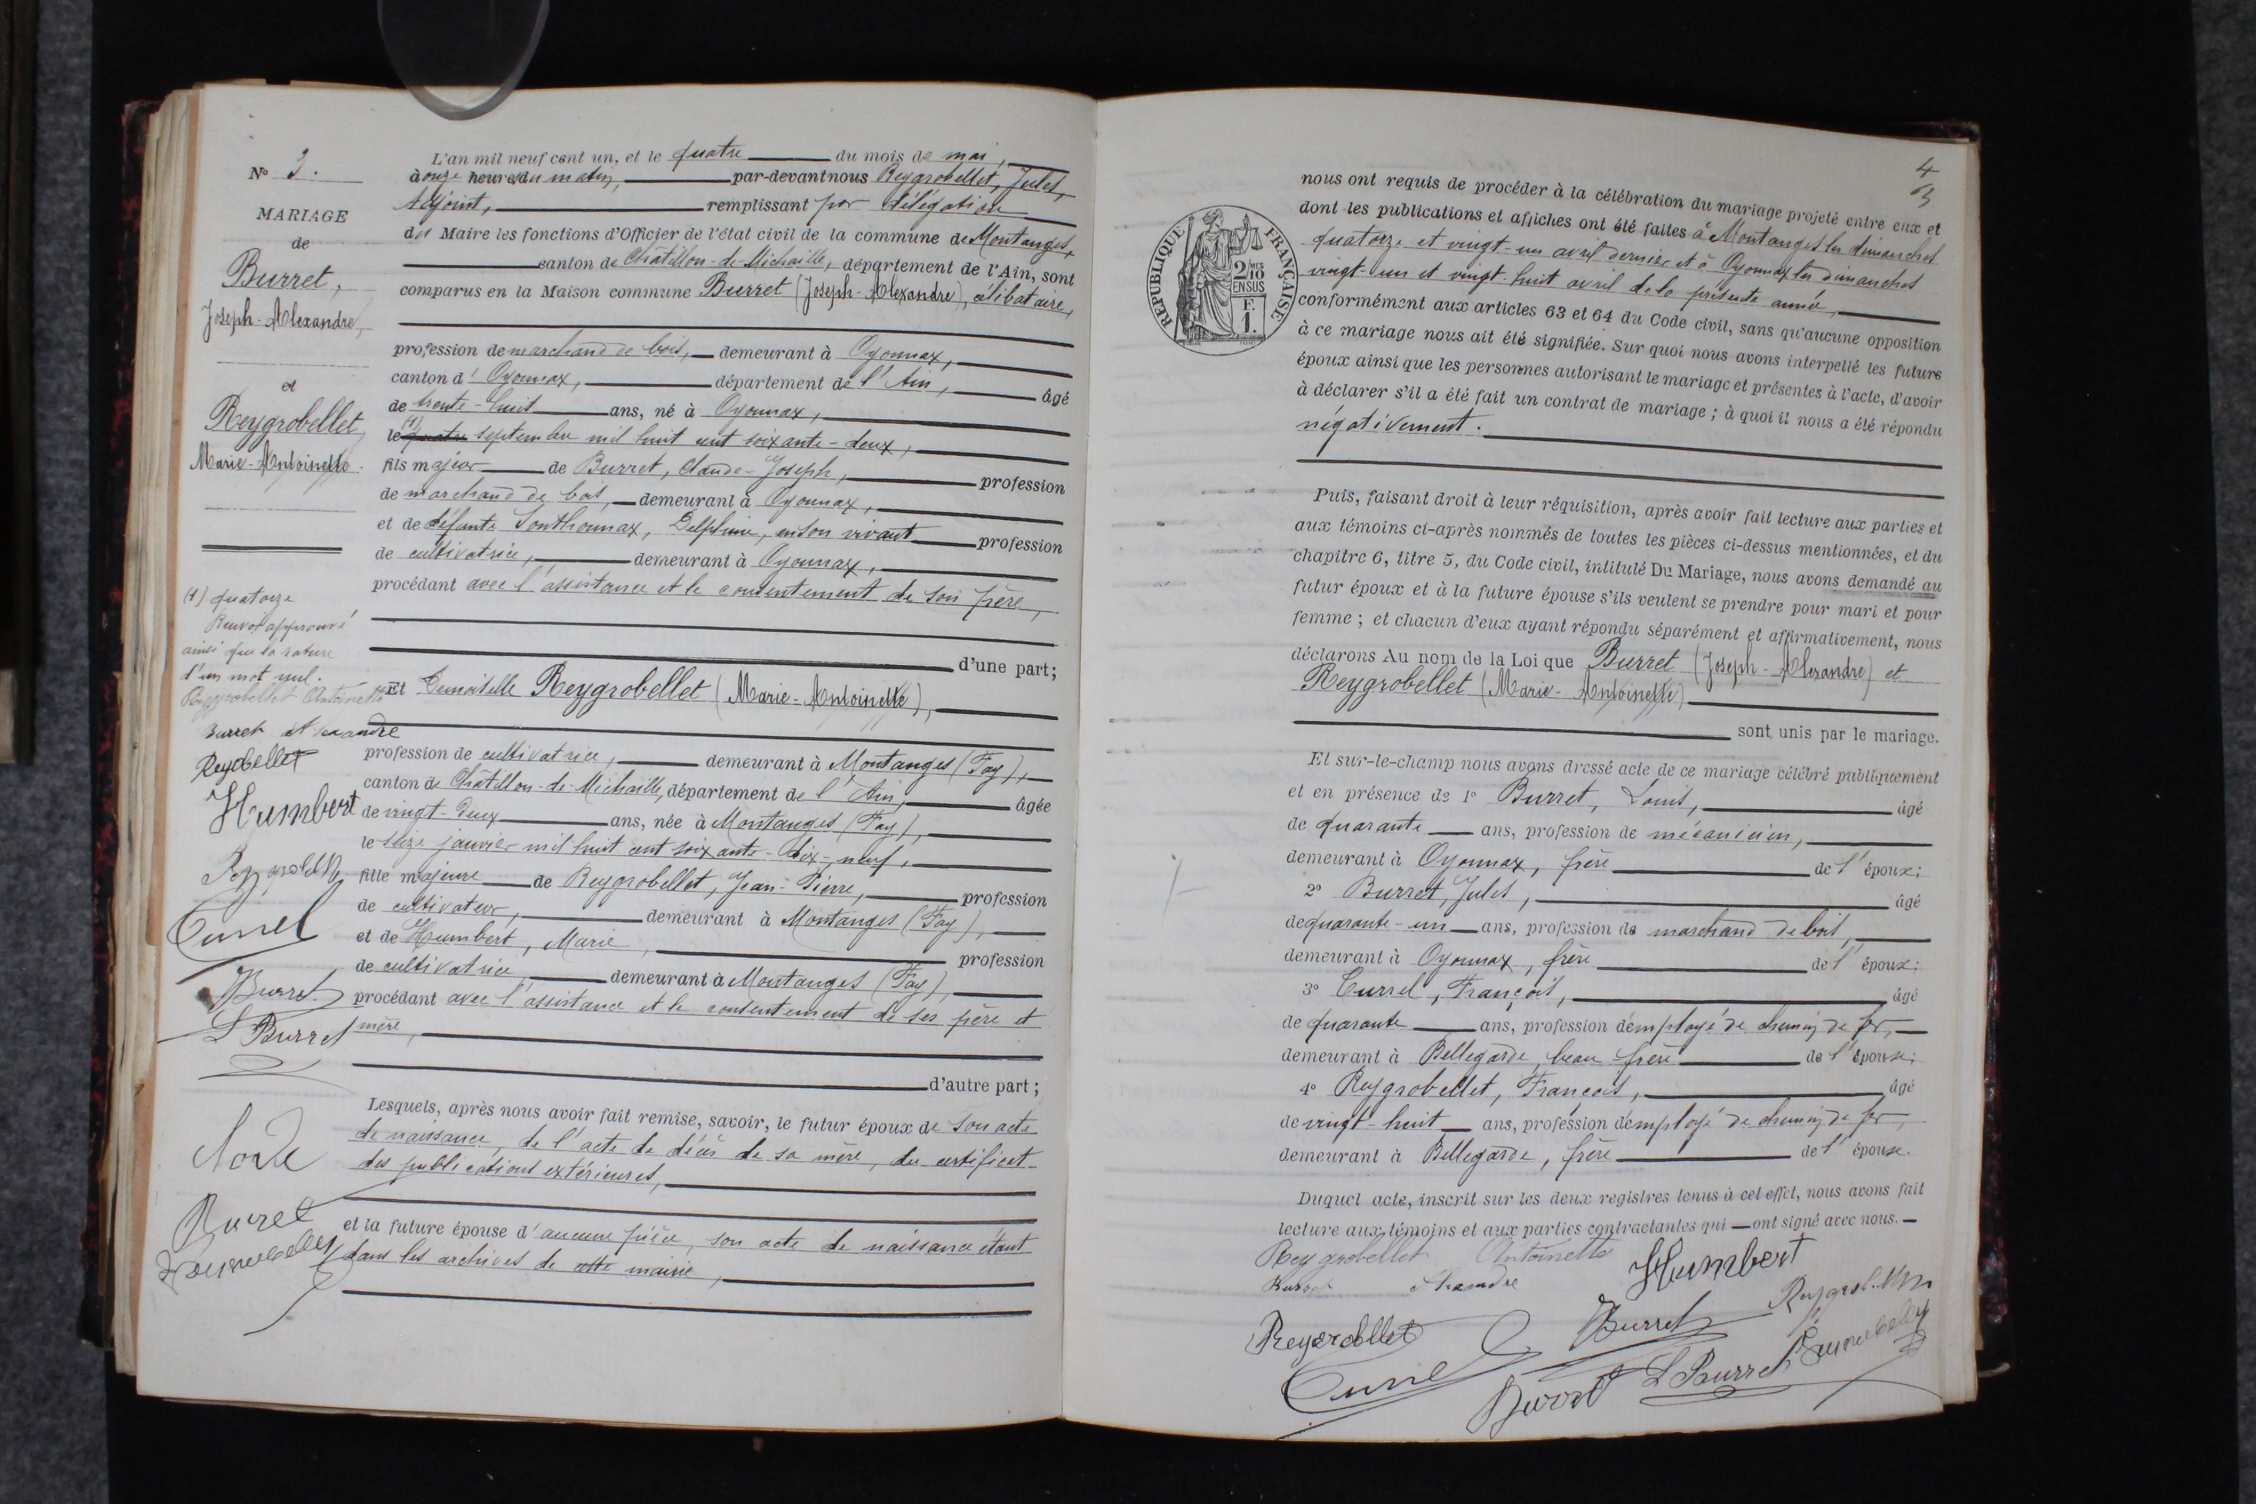 L'an mil neuf cent un, et le quatre du mois de mai,
N° 3. à onze heures du matin, par-devant nous Reygrobellet, Jules,
Adjoint, remplissant par délégation
MARIAGE
du Maire les fonctions d'Officier de l'état civil de la commune de Montanges,
de
canton de Châtillon-de-Michaille, département de l'Ain, sont
Burret,
comparus en la Maison commune Burret (Joseph-Alexandre), célibataire,
Joseph-Alexandre,
profession de marchand de bois, demeurant à Oyonnax,
canton d'Oyonnax, département de l'Ain, âgé
et
de trente-huit ans, né à Oyonnax,
Reygrobellet
le (1) quatre septembre mil huit cent soixante-deux,
Marie-Antoinette.
fils majeur de Burret, Claude-Joseph, profession
de marchand de bois, demeurant à Oyonnax,
et de défunte Sonthonnax, Delphine, en son vivant profession
de cultivatrice, demeurant à Oyonnax,
procédant avec l'assistance et le consentement de son père,
(1) quatorze
Renvoi approuvé
ainsi que la rature
d'un mot nul.
d'une part;
Reygrobellet Antoinette
Et Demoiselle Reygrobellet (Marie-Antoinette),
Burret Alexandre
Reygrobellet
profession de cultivatrice, demeurant à Montanges (Fay),
canton de Châtillon-de-Michaille, département de l'Ain, âgée
Humbert
de vingt-deux ans, née à Montanges (Fay),
le seize janvier mil huit cent soixante-dix-neuf,
Reygrobellet
fille majeure de Reygrobellet, Jean-Pierre, profession
de cultivateur, demeurant à Montanges (Fay),
Curre
et de Humbert, Marie, profession
de cultivatrice, demeurant à Montanges (Fay),
Burret
procédant avec l'assistance et le consentement de ses père et
L Burret
mère,
d'autre part;
Lesquels, après nous avoir fait remise, savoir, le futur époux de son acte
de naissance, de l'acte de décès de sa mère, du certificat
des publications extérieures,
Burret
et la future épouse d'aucune pièce, son acte de naissance étant
dans les archives de cette mairie,
4
3
nous ont requis de procéder à la célébration du mariage projeté entre eux et
dont les publications et affiches ont été faites à Montanges les dimanches
quatorze et vingt-un avril dernier et à Oyonnax les dimanches
vingt-un et vingt-huit avril de la présente année,
RÉPUBLIQUE FRANÇAISE
2/10 MES
EN SUS
F.
1.
conformément aux articles 63 et 64 du Code civil, sans qu'aucune opposition
à ce mariage nous ait été signifiée. Sur quoi nous avons interpellé les futurs
époux ainsi que les personnes autorisant le mariage et présentes à l'acte, d'avoir
à déclarer s'il a été fait un contrat de mariage; à quoi il nous a été répondu
négativement.
Puis, faisant droit à leur réquisition, après avoir fait lecture aux parties et
aux témoins ci-après nommés de toutes les pièces ci-dessus mentionnées, et du
chapitre 6, titre 5, du Code civil, intitulé Du Mariage, nous avons demandé au
futur époux et à la future épouse s'ils veulent se prendre pour mari et pour
femme; et chacun d'eux ayant répondu séparément et affirmativement, nous
déclarons Au nom de la Loi que Burret (Joseph-Alexandre) et
Reygrobellet (Marie-Antoinette)
sont unis par le mariage.
Et sur-le-champ nous avons dressé acte de ce mariage célébré publiquement
et en présence de 1° Burret, Louis, âgé
de quarante ans, profession de mécanicien,
demeurant à Oyonnax, frère de l'époux;
2° Burret, Jules, âgé
de quarante-un ans, profession de marchand de bois,
demeurant à Oyonnax, frère de l'époux;
3° Currel, François, âgé
de quarante ans, profession d'employé de chemin de fer,
demeurant à Bellegarde, beau-frère de l'épouse;
4° Reygrobellet, François, âgé
de vingt-huit ans, profession d'employé de chemin de fer,
demeurant à Bellegarde, frère de l'épouse.
Duquel acte, inscrit sur les deux registres tenus à cet effet, nous avons fait
lecture aux témoins et aux parties contractantes qui ont signé avec nous.
Reygrobellet Antoinette
Humbert
Reygrobellet
Burret
L Burret